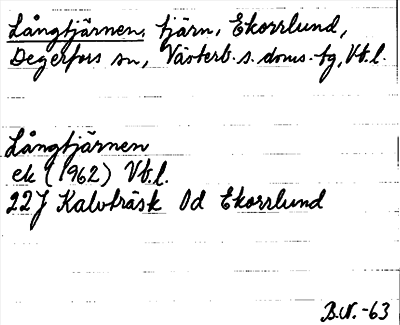 Långtjärnen, tjärn, Ekorrlund,
Degerfors sn, Västerb. s. doms. tg, Vb. l.
Långtjärnen
ek (1962) Vb. l.
22J Kalvträsk 0d Ekorrlund
B.N. -63